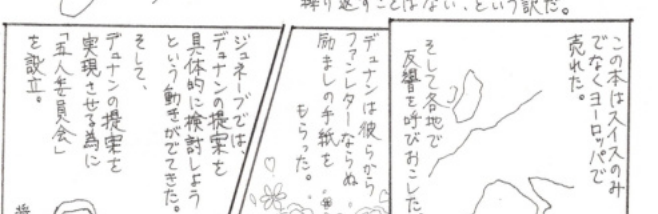 繰り返すことはない、という訳だ。
この本はスイスのみ
でなくヨーロッパで
売れた。
そして各地で
反響を呼びおこした
デュナンは彼らから
ファンレターならぬ
励ましの手紙を
もらった。
ジュネーブでは、
デュナンの提案を
具体的に検討しよう
という動きがでてきた。
そして、
デュナンの提案を
実現させる為に
「五人委員会」
を設立。